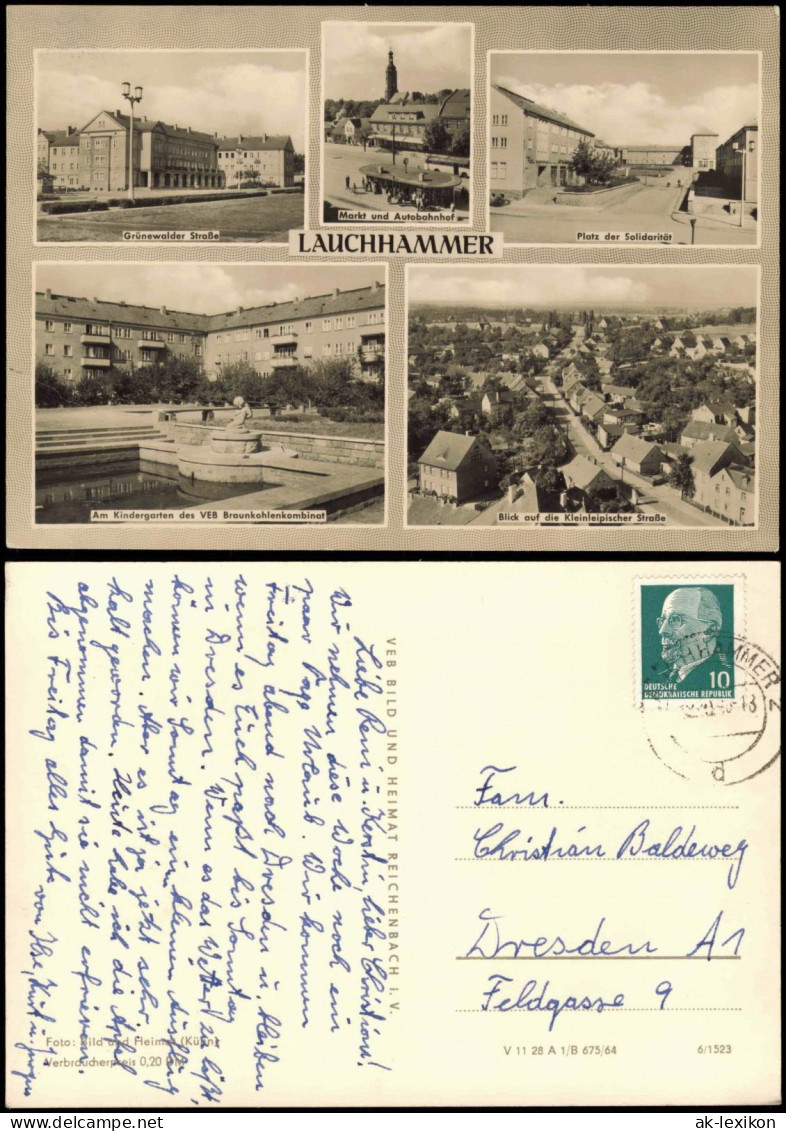 Grünewalder Straße
Markt und Autobahnhof
Platz der Solidarität
LAUCHHAMMER
Am Kindergarten des VEB Braunkohlenkombinat
Blick auf die Kleinleipischer Straße
Liebe Reni u. Kerstin, lieber Christian!
Wir nehmen diese Woche noch ein
paar Tage Urlaub. Wir kommen
Freitag abend nach Dresden u. bleiben
wenn es Euch paßt bis Sonntag
in Dresden. Wenn es das Wetter zu läßt,
können wir Sonntag ein kleinen Ausflug
machen. Aber es ist ja jetzt sehr
kalt geworden. Heute habe ich die Äpfel
abgenommen damit sie nicht erfrieren.
Bis Freitag alles Gute von Ilse, Kurt u.
VEB BILD UND HEIMAT REICHENBACH I. V.
Foto: Bild und Heimat (Kühn)
Verbraucherpreis 0,20 DM
10
DEUTSCHE
DEMOKRATISCHE REPUBLIK
LAUCHHAMMER 2
d
Fam.
Christian Baldeweg
Dresden A1
Feldgasse 9
V 11 28 A 1/B 675/64
6/1523
ak-lexikon